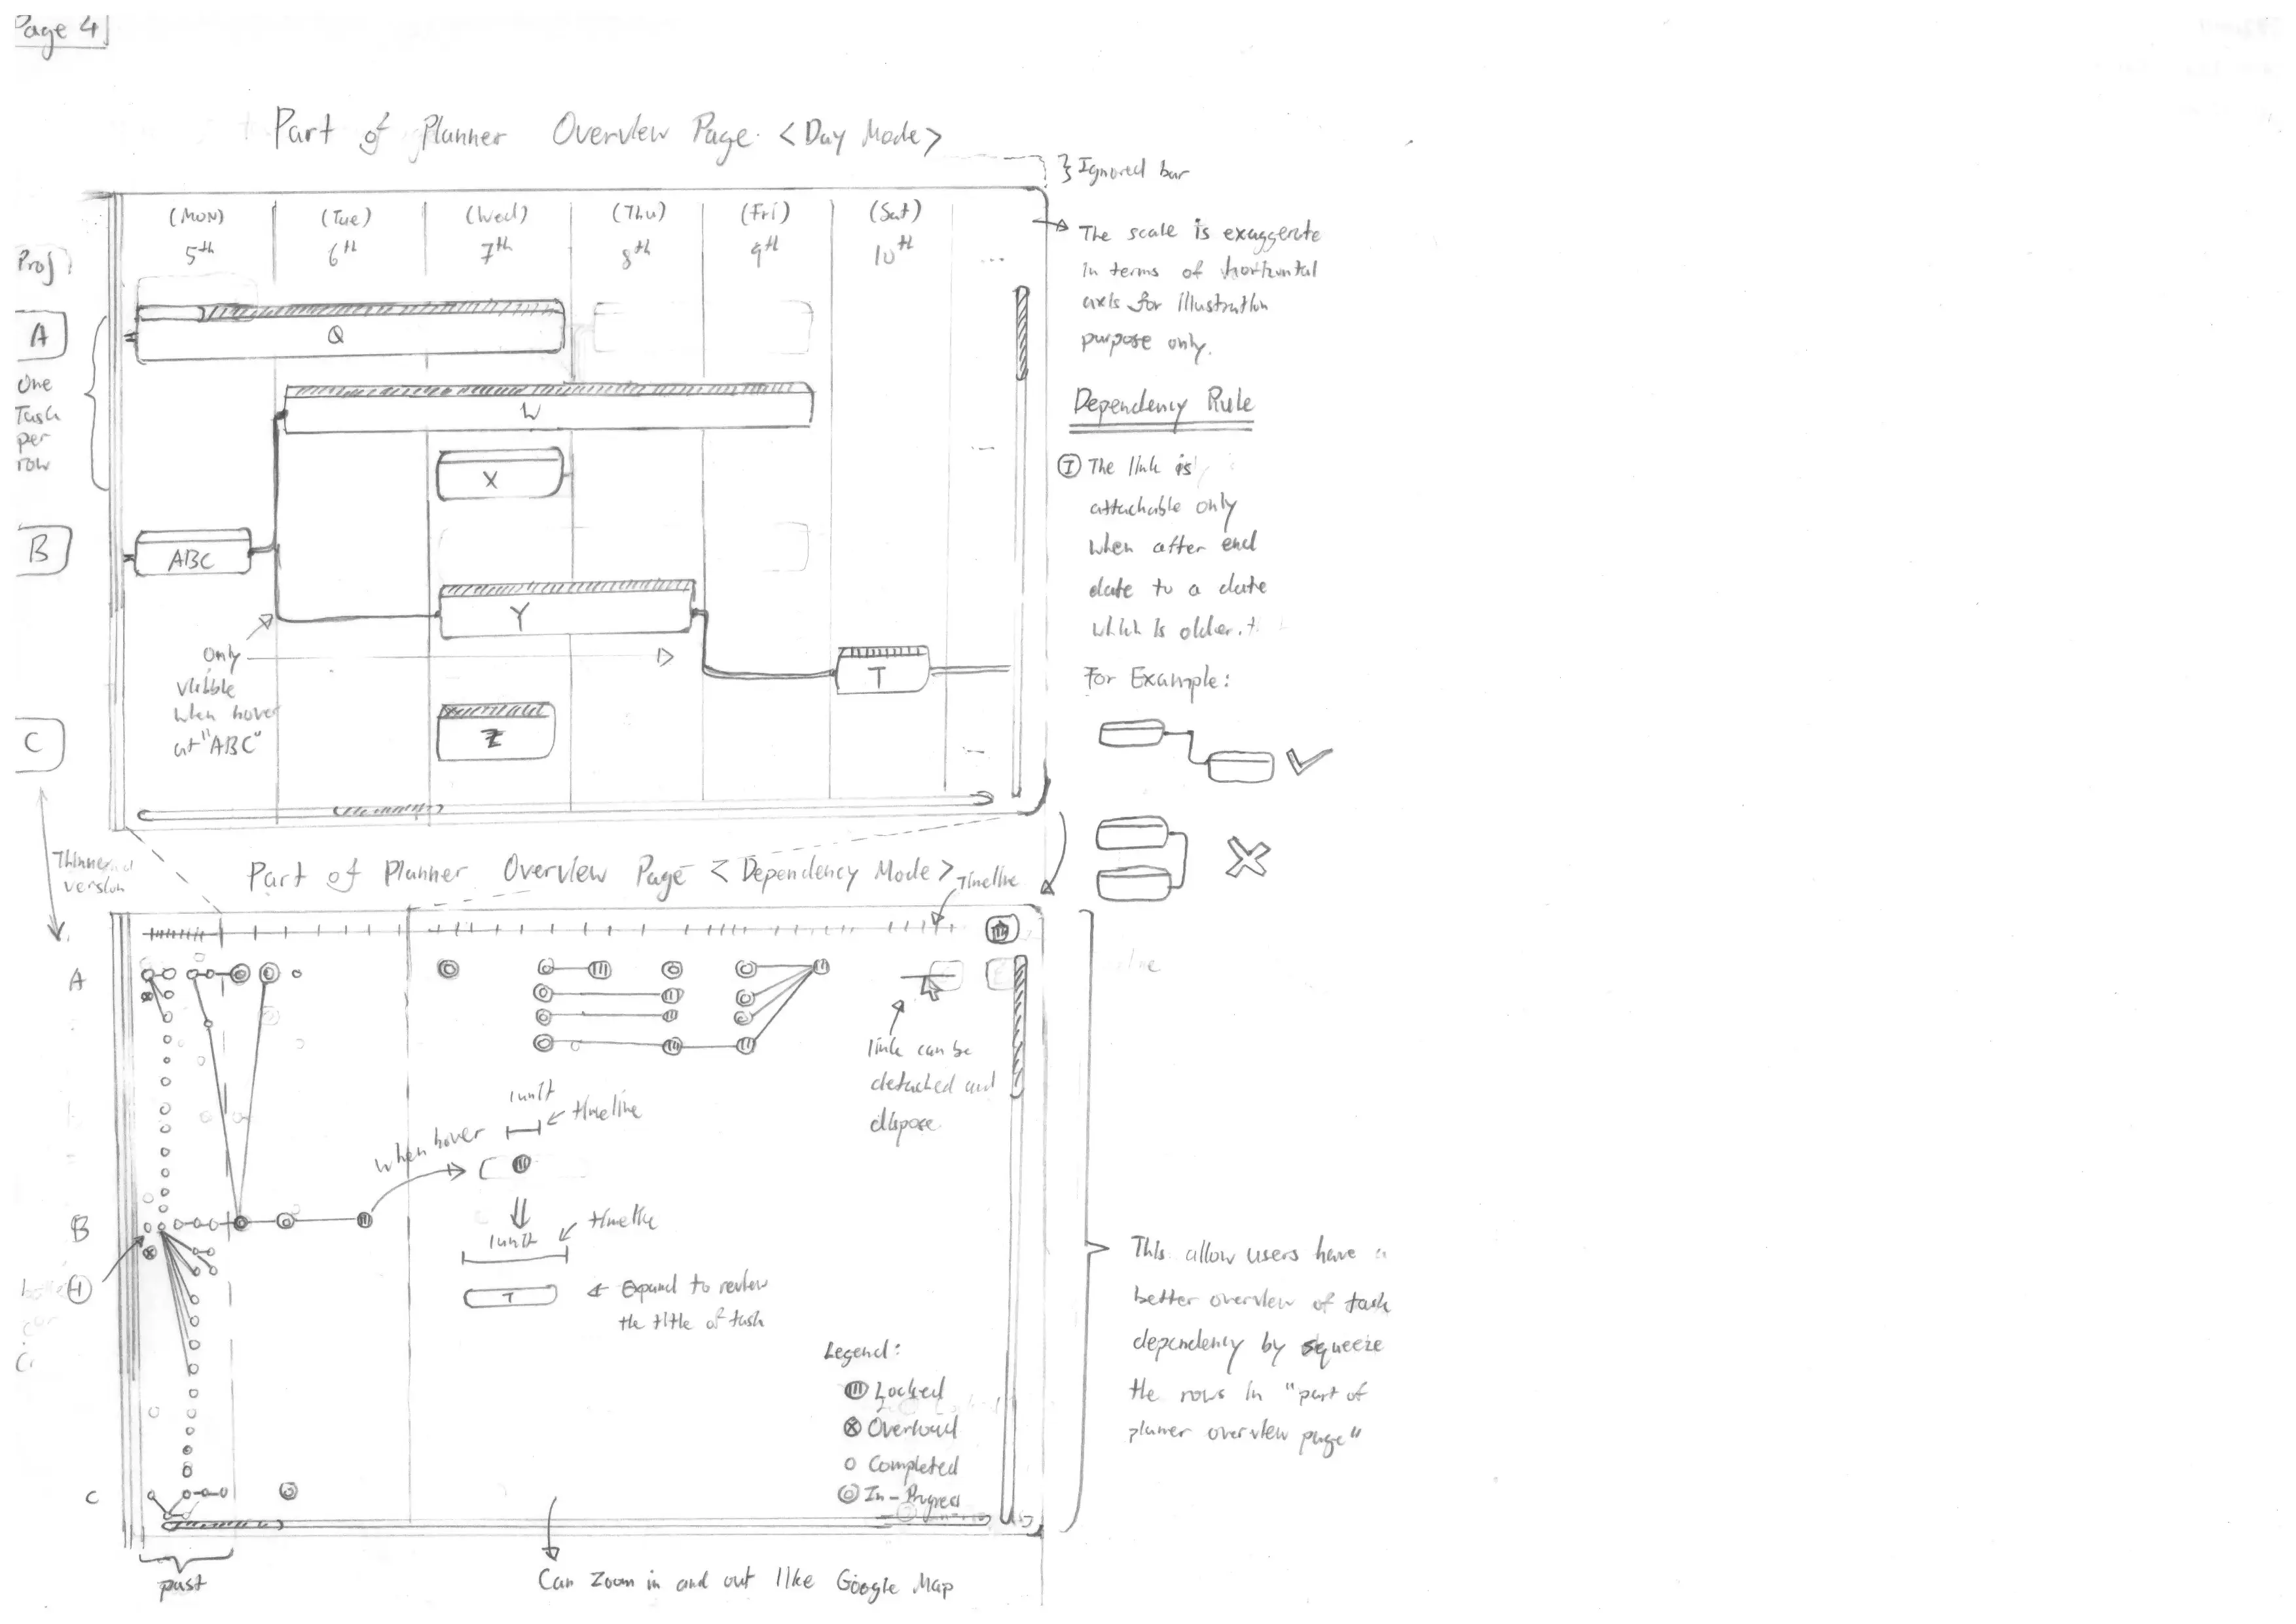 Page 4
Part of Planner Overview Page <Day Mode>
} Ignored bar
(MON) (Tue) (Wed) (Thu) (Fri) (Sat)
5th 6th 7th 8th 9th 10th ...
Proj
A
One
Task
per
row
B
C
Q
W
X
ABC
Y
T
Z
Only
visible
when hover
at "ABC"
The scale is exaggerate
in terms of horizontal
axis for illustration
purpose only.
Dependency Rule
I The link is
attachable only
when after end
date to a date
which is older.
For Example:
Thinner
version
Part of Planner Overview Page <Dependency Mode>
Timeline
A
B
C
link can be
detached and
dispose
When hover
1 unit
timeline
1 unit
timeline
T
Expand to review
the title of task
Legend:
Locked
Overload
Completed
In-Progress
This allow users have a
better overview of task
dependency by squeeze
the rows in "part of
planner overview page"
past
Can Zoom in and out like Google Map